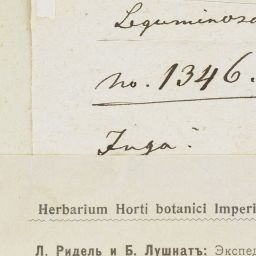 Leguminosa
No. 1346.
Inga.
Herbarium Horti botanici Imperi
Л. Ридель и Б. Лушнатъ: Экспед